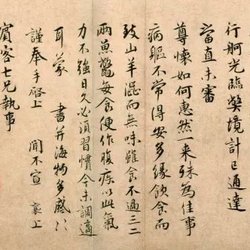 行舸光臨槩憤計已通達
當直未審
尊懷如何惠然一來殊為佳事
病軀不常得安多緣飲食所
致山羊混而無味雖食不過三二
兩魚鱉每食便作腹疾以此氣
力不強日久必須習慣今未調適
耳蒙 書并海物多感
謹奉手啓上 聞不宣 襄上
賓客七兄執事